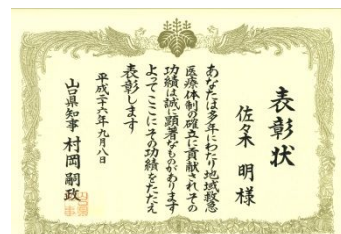 表彰状
佐々木 明 様
あなたは多年にわたり地域救急
医療体制の確立に貢献されその
功績は誠に顕著なものがあります
よってここにその功績をたたえ
表彰します
平成二十六年九月八日
山口県知事 村岡嗣政